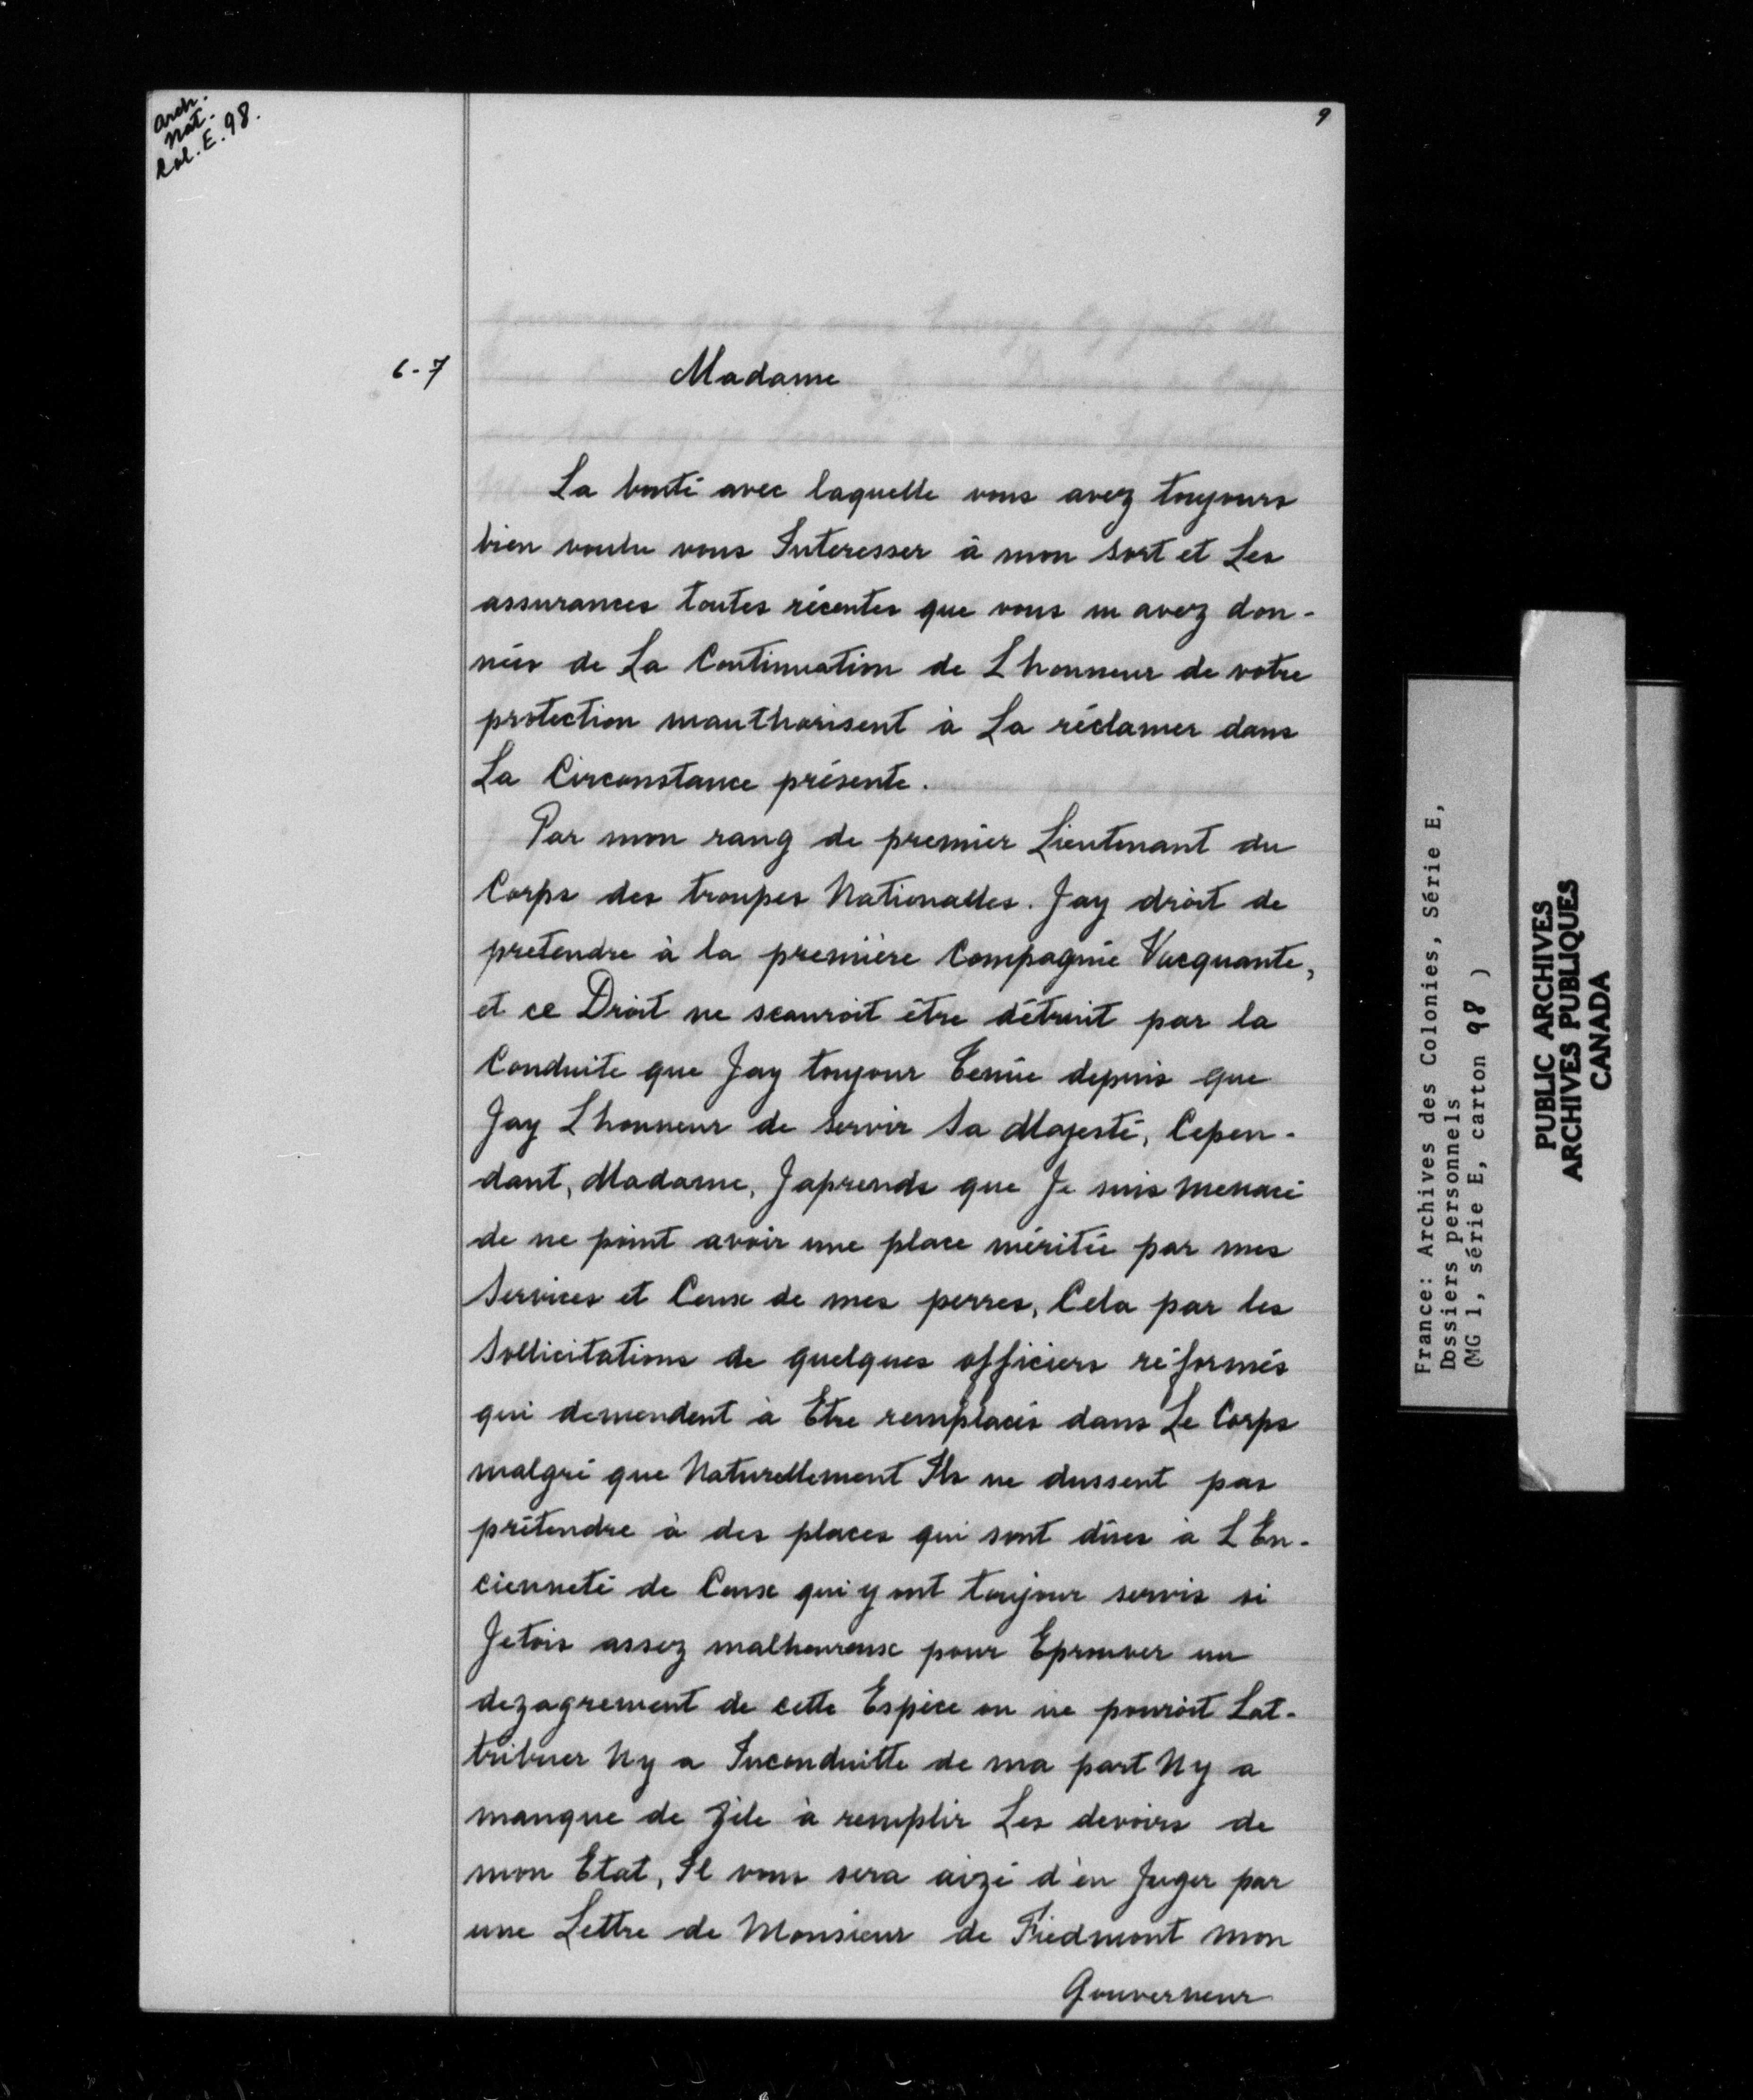 Arch.
Nat.
Col. E. 98.
9
6-7
Madame
La bonté avec laquelle vous avez toujours
bien voulu vous Interesser à mon sort et Les
assurances toutes récentes que vous m avez don-
nées de La Continuation de L honneur de votre
protection mauthorisent à La réclamer dans
La Circonstance présente.
Par mon rang de premier Lieutenant du
Corps des troupes Nationalles. Jay droit de
pretendre à la première Compagnie Vacquante,
et ce Droit ne scauroit être détruit par la
Conduite que Jay toujour Tenüe depuis que
Jay L honneur de servir sa Majesté, Cepen-
dant, Madame, Japrends que Je suis menacé
de ne point avoir une place méritée par mes
Services et Ceux de mes perres, Cela par les
Sollicitations de quelques officiers réformés
qui demendent à Etre remplacés dans Le Corps
malgré que Naturellement Ils ne dussent pas
prétendre à des places qui sont dües à L En-
cienneté de Ceux qui y ont toujour servis si
Jetois assez malheureux pour Eprouver un
dezagrement de cette Espèce on ne pouroit Lat-
tribuer Ny a Inconduitte de ma part Ny a
manque de Zéle à remplir Les devoirs de
mon Etat, Il vous sera aizé d'en Juger par
une Lettre de Monsieur de Fiedmont mon
Gouverneur
France: Archives des Colonies, Série E,
Dossiers personnels
(MG 1, série E, carton 98 )
PUBLIC ARCHIVES
ARCHIVES PUBLIQUES
CANADA